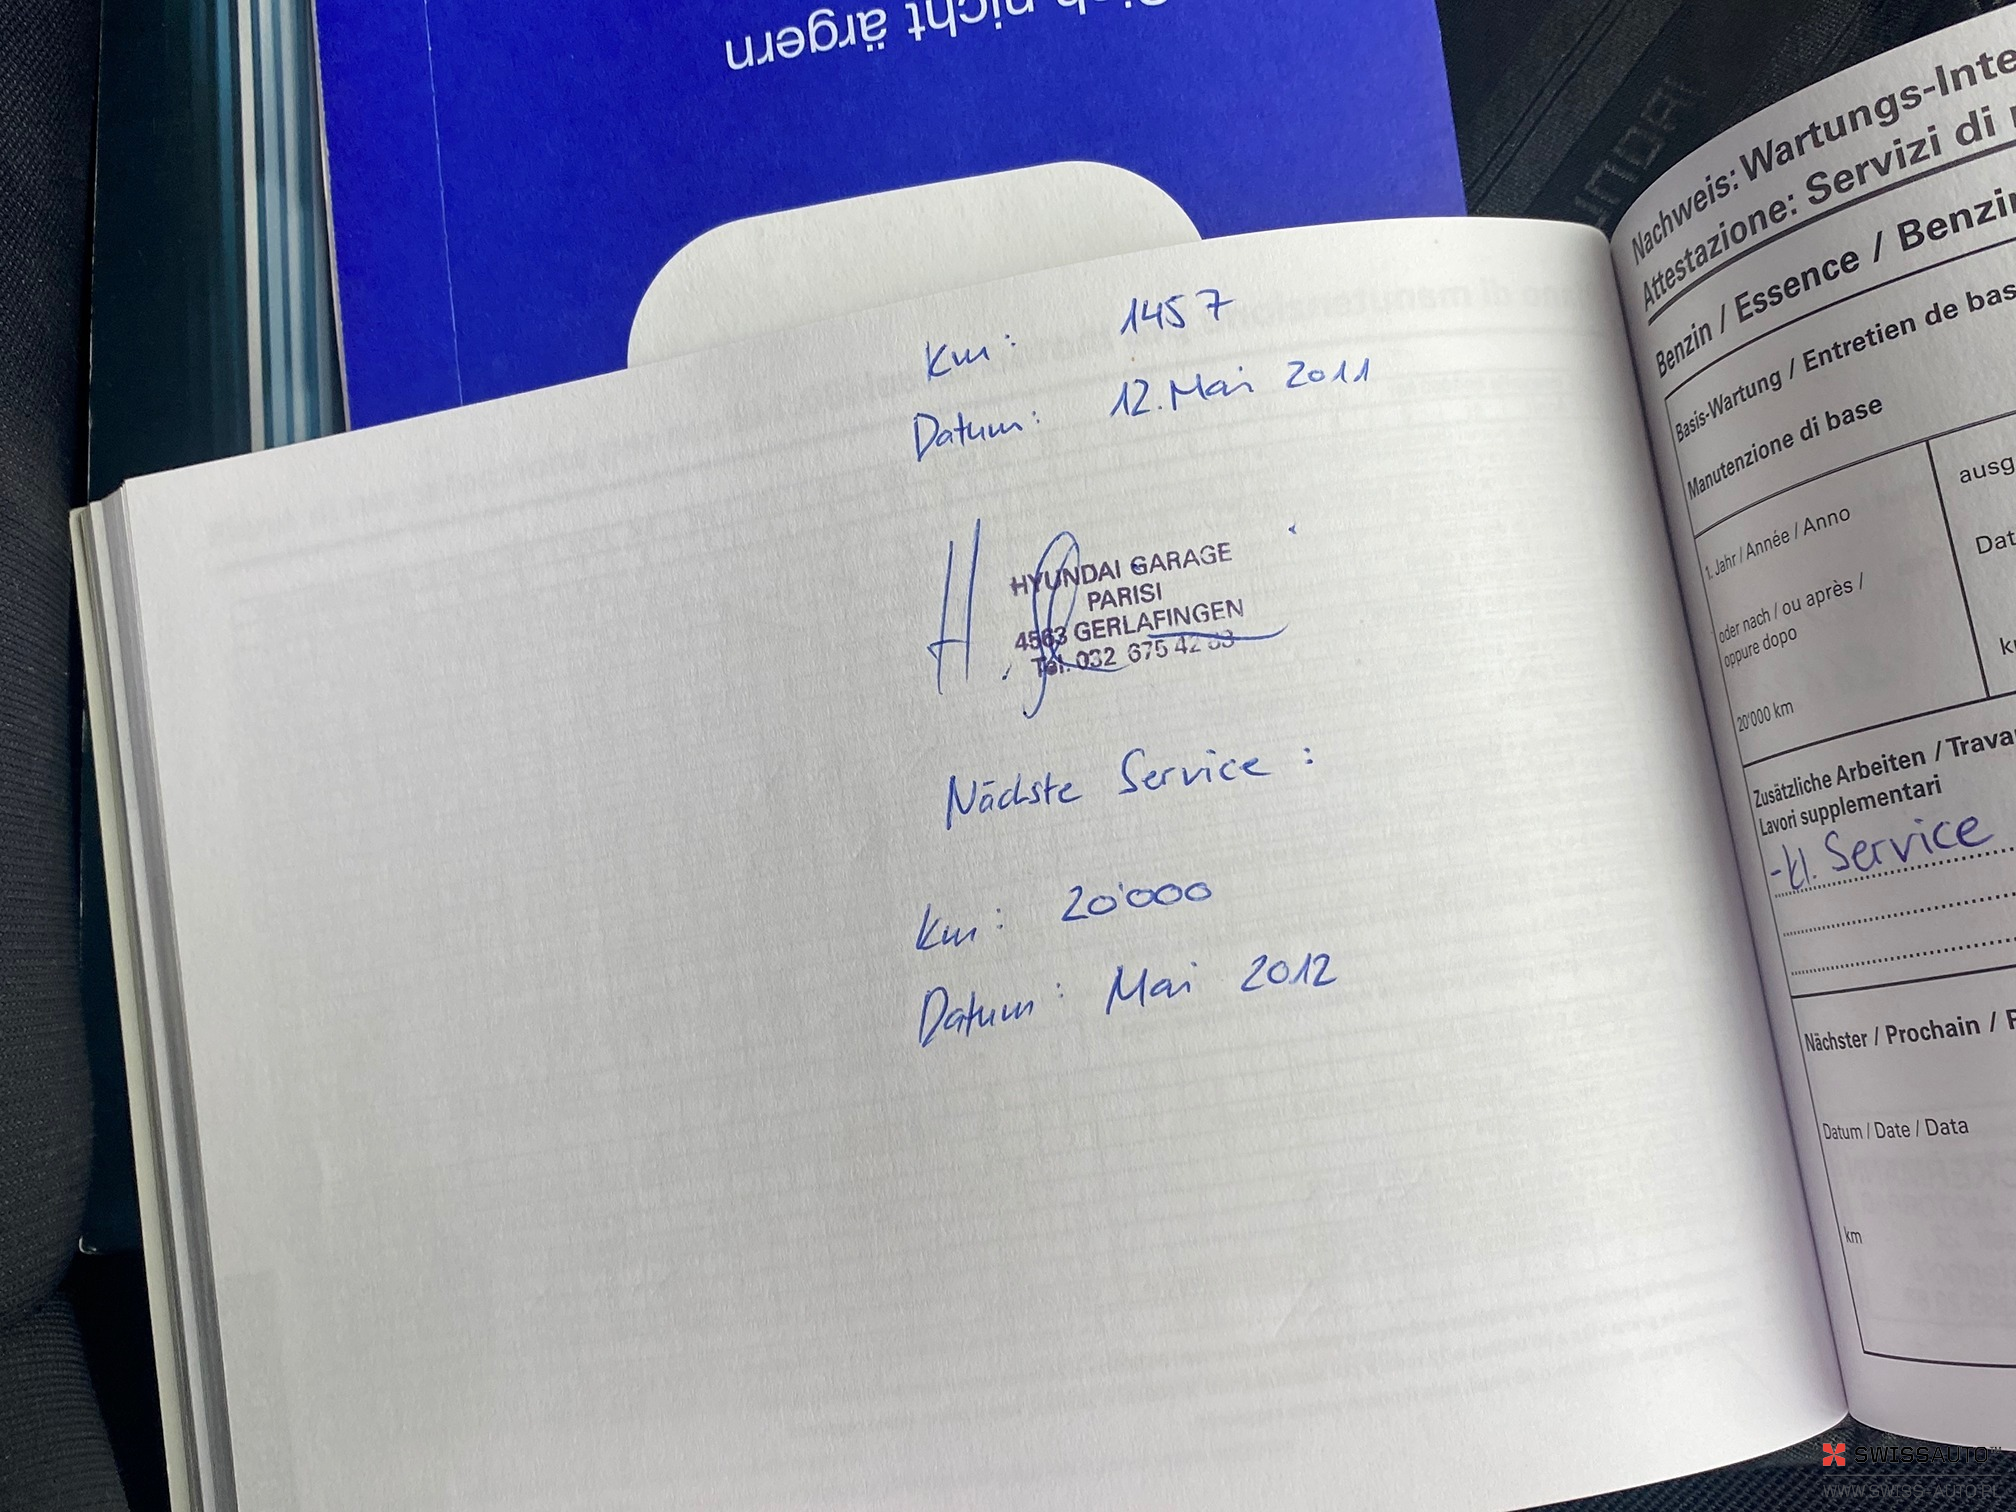 Sich nicht ärgern
Km: 1457
Datum: 12. Mai 2011
HYUNDAI GARAGE
PARISI
4563 GERLAFINGEN
Tel. 032 675 42
Nächste Service:
Km: 20'000
Datum: Mai 2012
Nachweis: Wartungs-Inte
Attestazione: Servizi di
Benzin / Essence / Benzin
Basis-Wartung / Entretien de bas
Manutenzione di base
1. Jahr / Année / Anno
oder nach / ou après /
oppure dopo
20'000 km
ausg
Dat
k
Zusätzliche Arbeiten / Trava
Lavori supplementari
-kl. Service
Nächster / Prochain / P
Datum / Date / Data
km
SWISSAUTO
WWW.SWISS-AUTO.PL